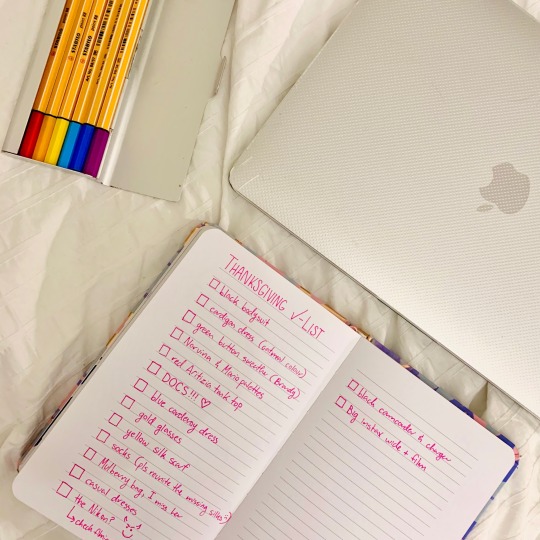 THANKSGIVING √-LIST
black bodysuit
cardigan dress (oatmeal colour)
green button sweather (Brandy)
Narvina & Mario palettes
red Aritzia tank top
DOCS!!! ♡
blue corduroy dress
gold glasses
yellow silk scarf
socks (pls reunite the missing silks :))
Mulberry bag, I miss her
casual dresses
the Nikon?
↳ check film
black camcorder & charger
Big instax wide + film
STABILO